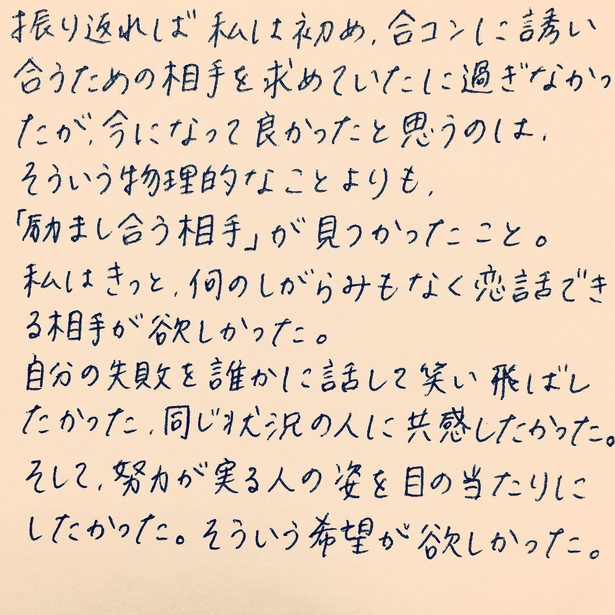 振り返れば私は初め、合コンに誘い
合うための相手を求めていたに過ぎなかっ
たが、今になって良かったと思うのは、
そういう物理的なことよりも、
「励まし合う相手」が見つかったこと。
私はきっと、何のしがらみもなく恋話でき
る相手が欲しかった。
自分の失敗を誰かに話して笑い飛ばし
たかった、同じ状況の人に共感したかった。
そして、努力が実る人の姿を目の当たりに
したかった。そういう希望が欲しかった。